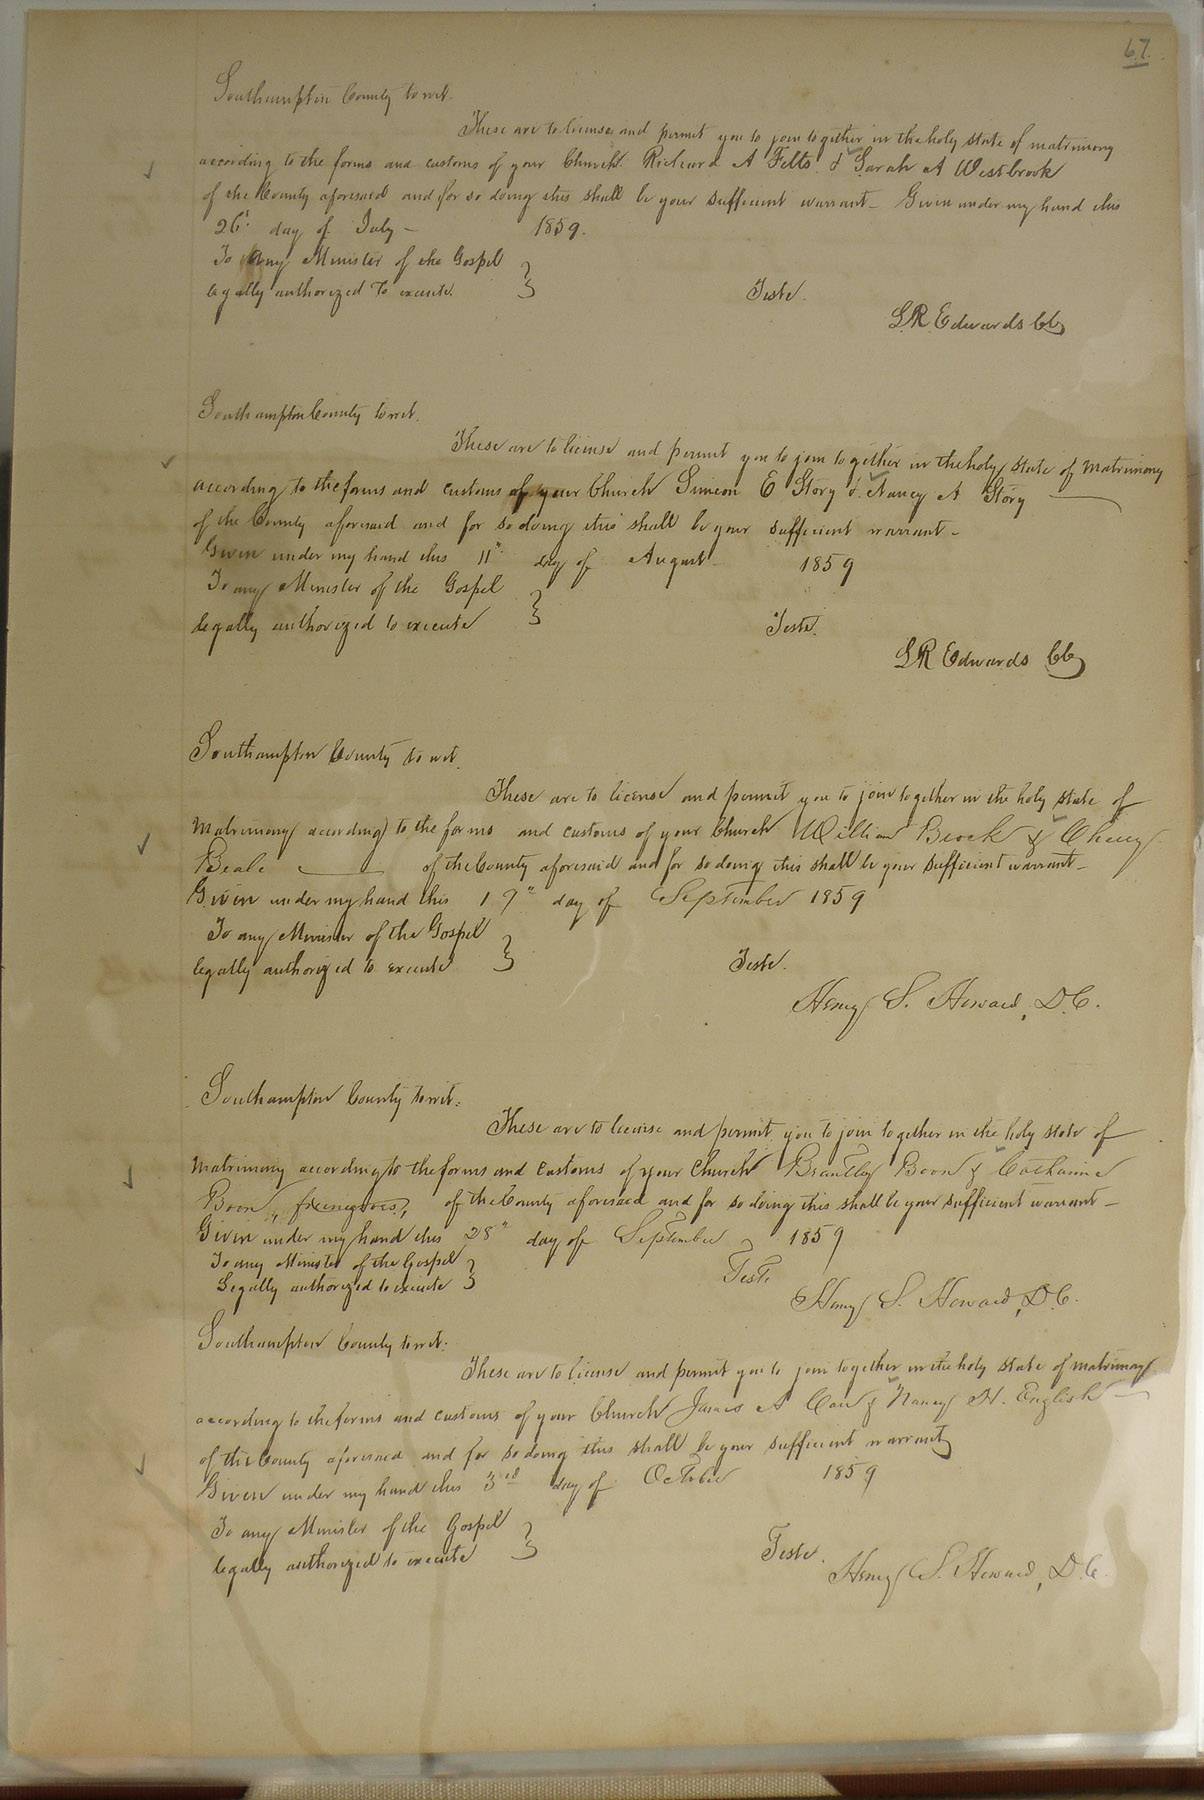 67.
Southampton County to wit.
These are to license and permit you to join together in the holy state of matrimony
according to the forms and customs of your Church Richard A Felts & Sarah A Westbrook
of the County aforesaid and for so doing this shall be your sufficient warrant - Given under my hand this
26" day of July - 1859.
To any Minister of the Gospel
legally authorized to execute.
Teste.
L.R. Edwards Clk
Southampton County to wit.
These are to license and permit you to join together in the holy state of matrimony
according to the forms and customs of your Church Simeon E Story & Nancy A Story
of the County aforesaid and for so doing this shall be your sufficient warrant -
Given under my hand this 11" day of August - 1859
To any Minister of the Gospel
legally authorized to execute
Teste.
LR Edwards Clk
Southampton County to wit.
These are to license and permit you to join together in the holy state of
Matrimony according to the forms and customs of your Church William Brock &
Beale of the County aforesaid and for so doing this shall be your sufficient warrant -
Given under my hand this 19" day of September 1859
To any Minister of the Gospel
legally authorized to execute
Teste.
Henry S. Howard, D.C.
Southampton County to wit:
These are to license and permit you to join together in the holy state of
Matrimony according to the forms and customs of your Church Brantley Boon & Catharine
Boon, free negroes, of the County aforesaid and for so doing this shall be your sufficient warrant -
Given under my hand this 28" day of September 1859
To any Minister of the Gospel
Legally authorized to execute
Teste
Henry S. Howard, D.C.
Southampton County to wit:
These are to license and permit you to join together in the holy state of matrimony
according to the forms and customs of your Church James A & Nancy H. English
of the County aforesaid and for so doing this shall be your sufficient warrant
Given under my hand this 3rd day of October 1859
To any Minister of the Gospel
legally authorized to execute
Teste.
Henry S. Howard, D.C.